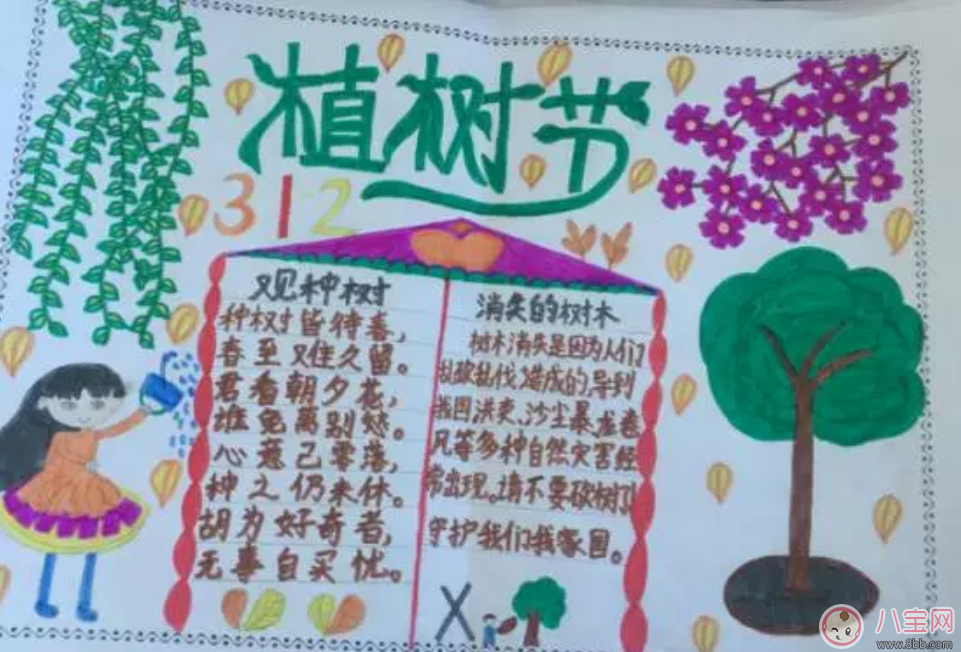 植树节
312
观种树
种树皆待春，
春至难久留。
君看朝夕花，
谁免离别愁。
心意已零落，
种之仍未休。
胡为好奇者，
无事自买忧。
消失的树木
树木消失是因为人们
乱砍乱伐造成的导到
我国洪灾、沙尘暴、龙卷
风等多种自然灾害经
常出现。请不要砍树了
守护我们我家园。
八宝网
www.8bb.com